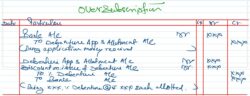 Over Subscription
Date Particulars LF Dr Cr
Bank A/c Dr xxxx
To Debenture App & Allotment A/c xxxx
(Being application money received)
Debenture App & Allotment A/c Dr xxxx
Discount on issue of Debenture A/c Dr xxxx
To % Debenture A/c xxxx
To Bank A/c xxxx
(Being xxx % Debenture @ xxx each allotted)